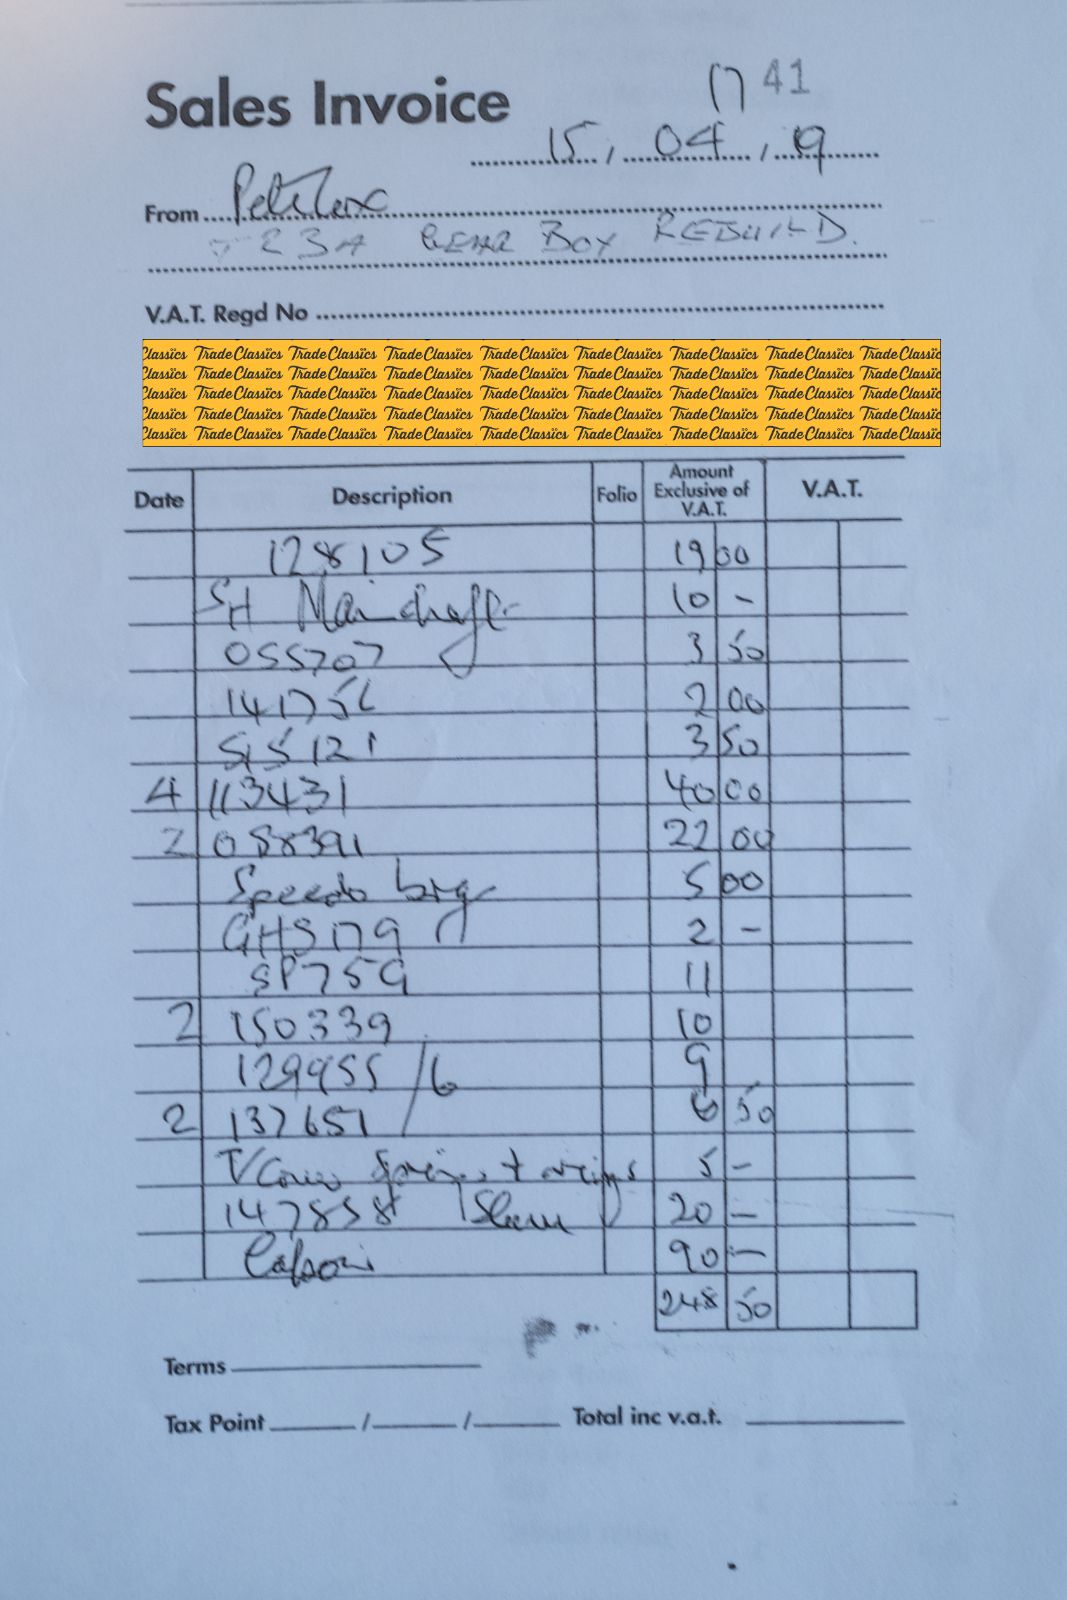 Sales Invoice 17 41
15, 04, 19
From Pete Cox
TR3A GEAR BOX REBUILD.
V.A.T. Regd No
Classics Trade Classics Trade Classics Trade Classics Trade Classics Trade Classics Trade Classics Trade Classics Trade Classic
Classics Trade Classics Trade Classics Trade Classics Trade Classics Trade Classics Trade Classics Trade Classics Trade Classic
Classics Trade Classics Trade Classics Trade Classics Trade Classics Trade Classics Trade Classics Trade Classics Trade Classic
Classics Trade Classics Trade Classics Trade Classics Trade Classics Trade Classics Trade Classics Trade Classics Trade Classic
Classics Trade Classics Trade Classics Trade Classics Trade Classics Trade Classics Trade Classics Trade Classics Trade Classic
Date Description Folio Amount Exclusive of V.A.T. V.A.T.
128105 19 00
SH Mainshaft 10 -
055707 3 50
141756 2 00
515121 3 50
4 113431 40 00
2 058391 22 00
Speedo brg 5 00
GHS179 2 -
SP75G 11
2 150339 10
129955/6 9
2 137651 6 50
T/Cover Springs + orings 5 -
147858 1 20 -
90 -
248 50
Terms
Tax Point / / Total inc v.a.t.